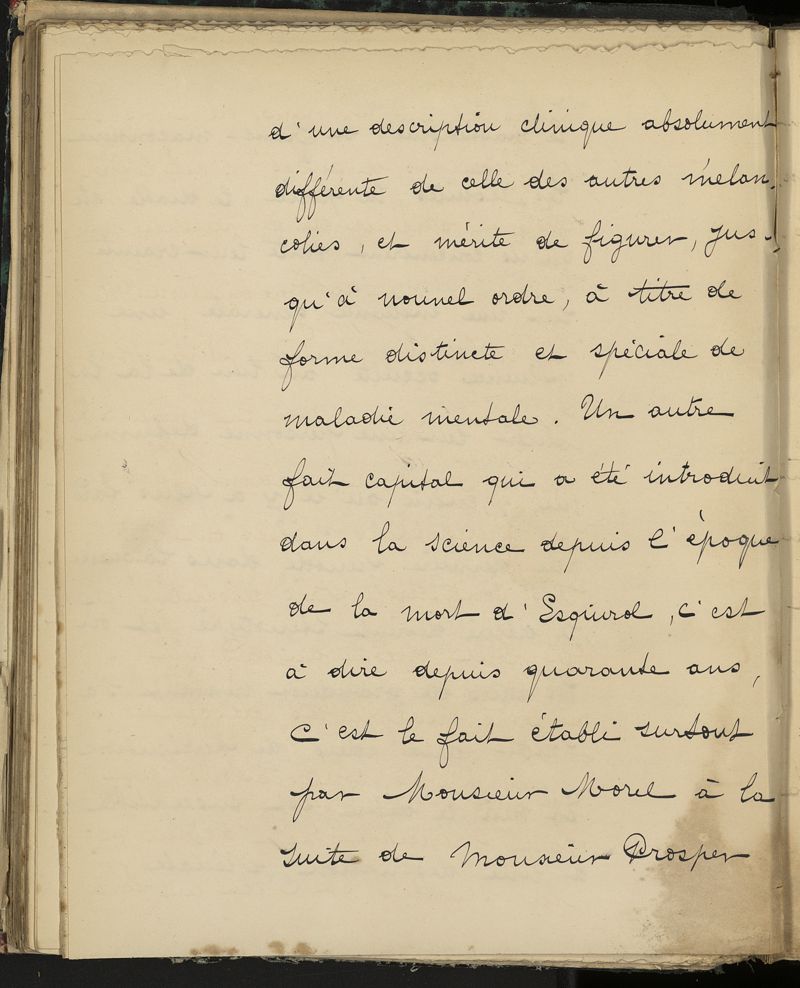 d'une description clinique absolument
différente de celle des autres mélan-
colies, et mérite de figurer, jus-
qu'à nouvel ordre, à titre de
forme distincte et spéciale de
maladie mentale. Un autre
fait capital qui a été introduit
dans la science depuis l'époque
de la mort d'Esquirol, c'est
à dire depuis quarante ans,
c'est le fait établi surtout
par Monsieur Morel à la
suite de Monsieur Prosper